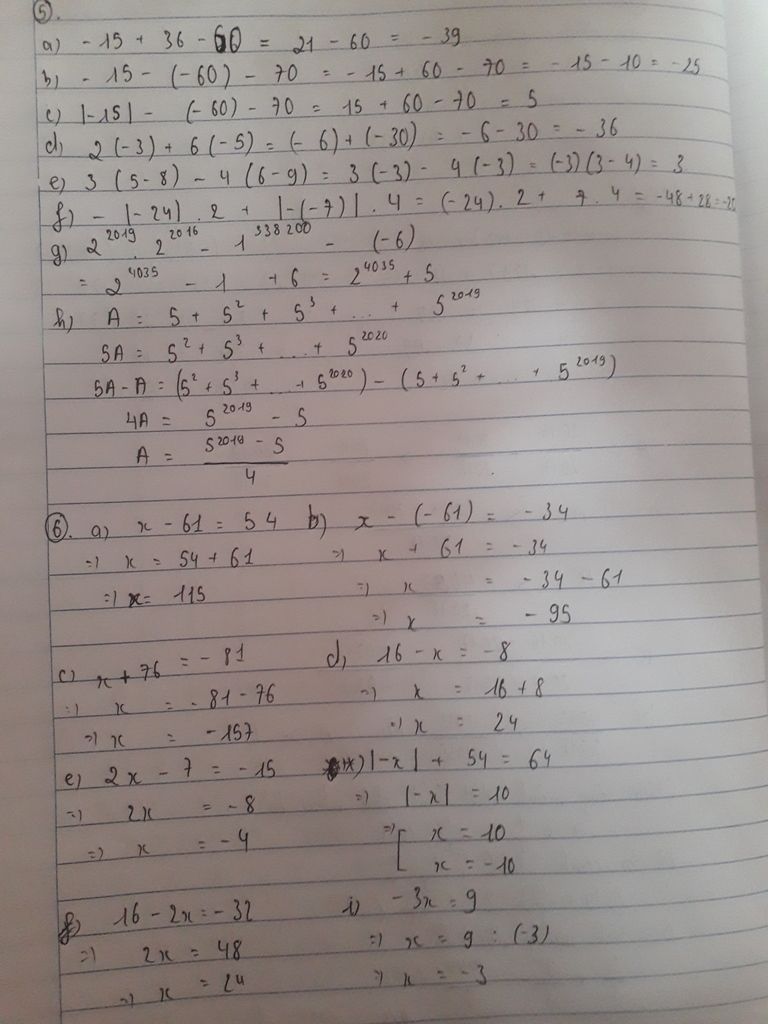 5.
a) - 15 + 36 - 60 = 21 - 60 = - 39
b) - 15 - (-60) - 70 = - 15 + 60 - 70 = - 15 - 10 = - 25
c) |-15| - (-60) - 70 = 15 + 60 - 70 = 5
d) 2(-3) + 6(-5) = (-6) + (-30) = - 6 - 30 = - 36
e) 3(5-8) - 4(6-9) = 3(-3) - 4(-3) = (-3)(3-4) = 3
f) - |-24| . 2 + |-(-7)| . 4 = (-24). 2 + 7 . 4 = -48 + 28 = -20
g) 2^2019 . 2^2016 - 1^338200 - (-6)
= 2^4035 - 1 + 6 = 2^4035 + 5
h) A = 5 + 5^2 + 5^3 + ... + 5^2019
5A = 5^2 + 5^3 + ... + 5^2020
5A - A = (5^2 + 5^3 + ... + 5^2020) - (5 + 5^2 + ... + 5^2019)
4A = 5^2019 - 5
A = 5^2019 - 5
4
6. a) x - 61 = 54 b) x - (-61) = - 34
=) x = 54 + 61 =) x + 61 = - 34
=) x = 115 =) x = - 34 - 61
=) x = - 95
c) x + 76 = - 81 d) 16 - x = - 8
=) x = - 81 - 76 =) x = 16 + 8
=) x = - 157 =) x = 24
e) 2x - 7 = - 15 *) |-x| + 54 = 64
=) 2x = - 8 =) |-x| = 10
=) x = - 4 =) [ x = 10
x = - 10
g) 16 - 2x = - 32 i) - 3x = 9
=) 2x = 48 =) x = 9 : (-3)
=) x = 24 =) x = - 3